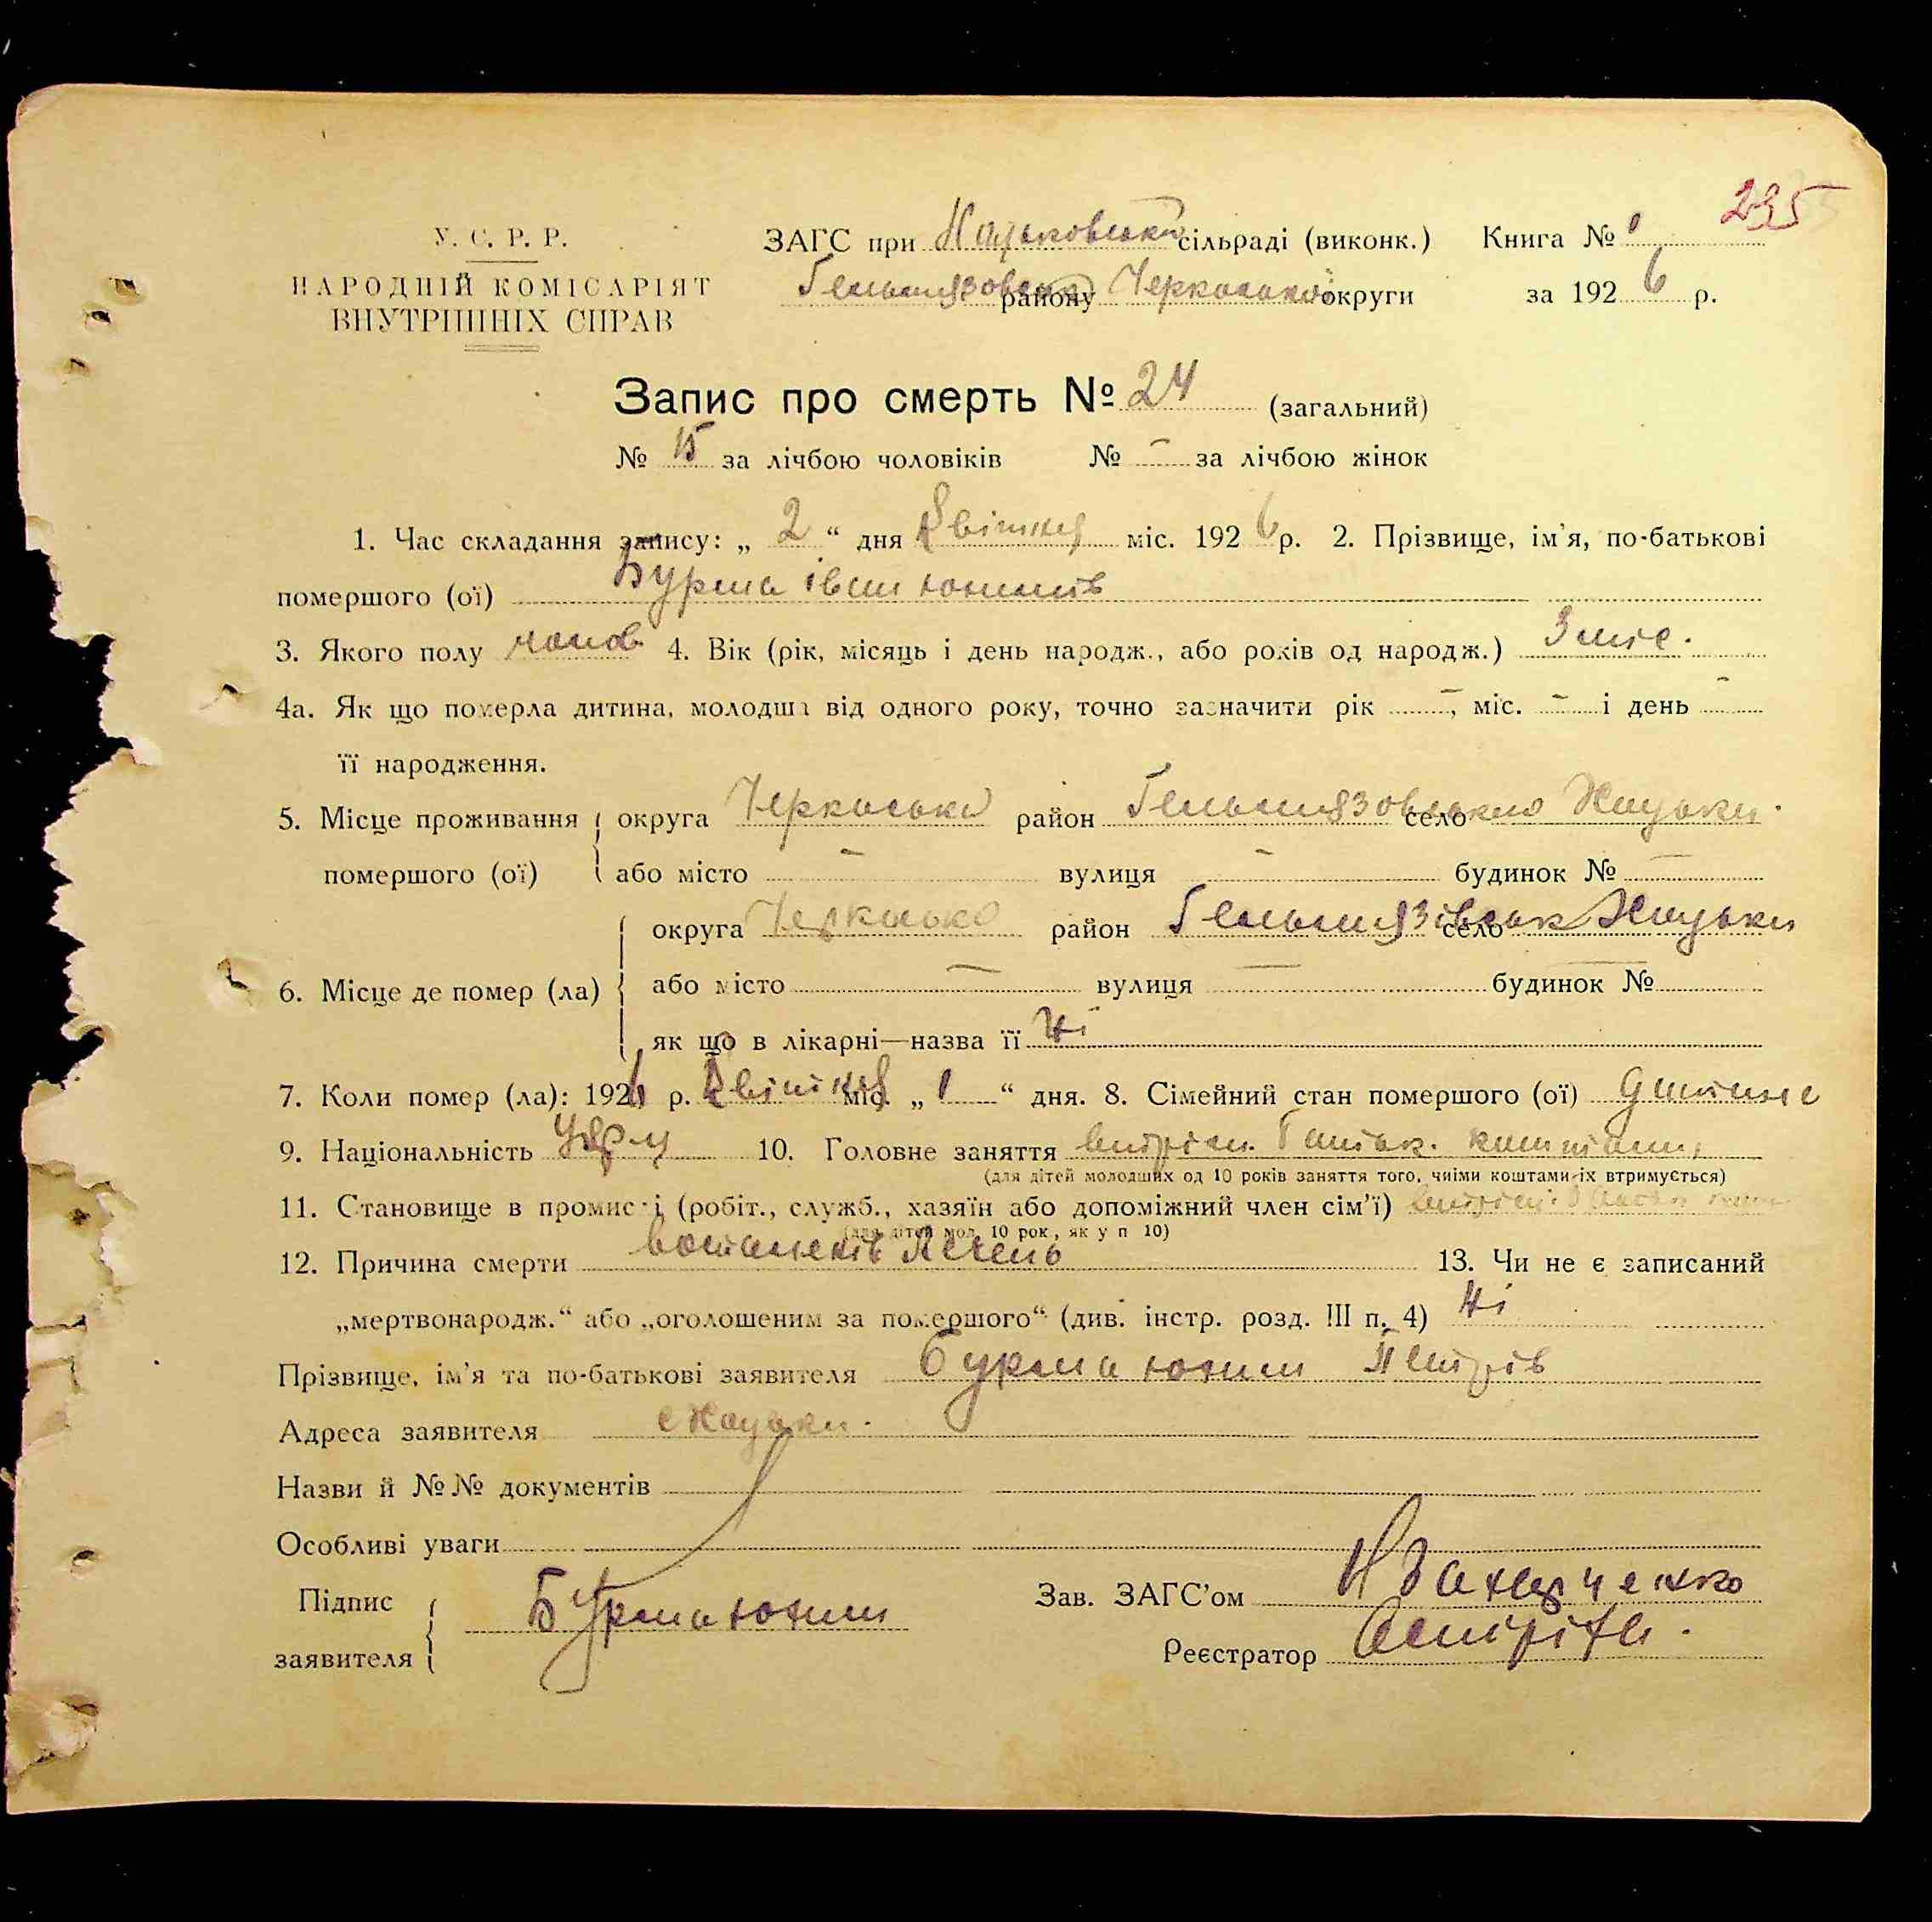 235
У. С. Р. Р.
НАРОДНІЙ КОМІСАРІЯТ
ВНУТРІШНІХ СПРАВ
ЗАГС при сільраді (виконк.) Книга № 1
Гельмязовськ району Черкаської округи за 1926 р.
Запис про смерть № 24 (загальний)
№ 15 за лічбою чоловіків № - за лічбою жінок
1. Час складання запису: „ 2 “ дня Квітня міс. 1926 р. 2. Прізвище, ім'я, по-батькові
помершого (ої) Бурма іван юхимів
3. Якого полу чолов 4. Вік (рік, місяць і день народж., або років од народж.) 3 міс.
4а. Як що померла дитина, молодша від одного року, точно зазначити рік -, міс. - і день -
її народження.
5. Місце проживання округа Черкаська район Гельмязовсько село Хацьки
помершого (ої) або місто - вулиця - будинок № -
округа Черкасько район Гельмязівськ село Хацьки
6. Місце де помер (ла) або місто - вулиця - будинок №
як що в лікарні—назва її Ні
7. Коли помер (ла): 1926 р. Квітня міс. „ 1 “ дня. 8. Сімейний стан помершого (ої) дитине
9. Національність Укр 10. Головне заняття
(для дітей молодших од 10 років заняття того, чиїми коштами їх втримується)
11. Становище в промислі (робіт., служб., хазяїн або допоміжний член сім'ї)
(для дітей мол. 10 рок, як у п 10)
12. Причина смерти 13. Чи не є записаний
„мертвонародж.“ або „оголошеним за помершого“ (див. інстр. розд. III п. 4) Ні
Прізвище, ім'я та по-батькові заявителя Бурма юхим Петрів
Адреса заявителя с Хацьки.
Назви й №№ документів
Особливі уваги
Підпис Бурма юхим Зав. ЗАГС'ом
заявителя Реєстратор